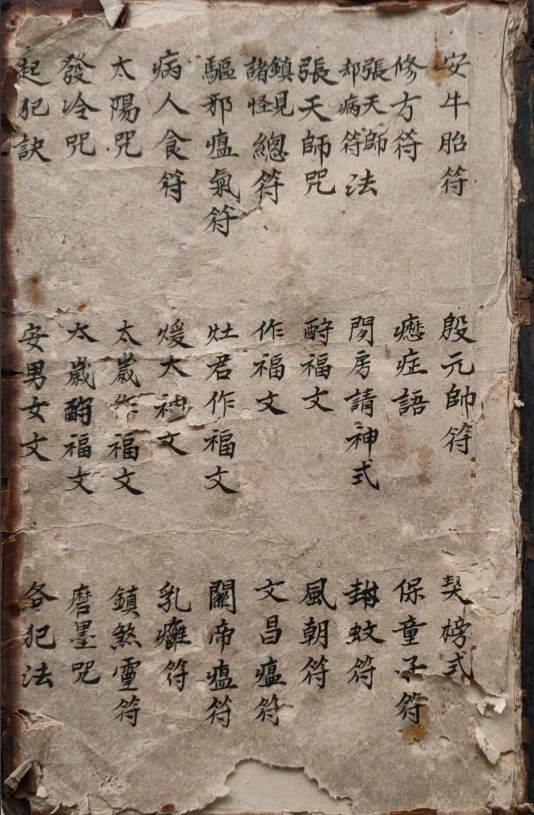 安牛胎符
修方符
張天師却病符法
張天師咒
鎮見諸怪總符
驅邪瘟氣符
病人食符
太陽咒
發冷咒
起犯訣
殷元帥符
症語
房請神式
酧福文
作福文
灶君作福文
煖大神文
太歲作福文
太歲酧福文
安男女文
契榜式
保童子符
封蚊符
風朝符
文昌瘟符
關帝瘟符
乳癰符
鎮煞靈符
磨墨咒
各犯法